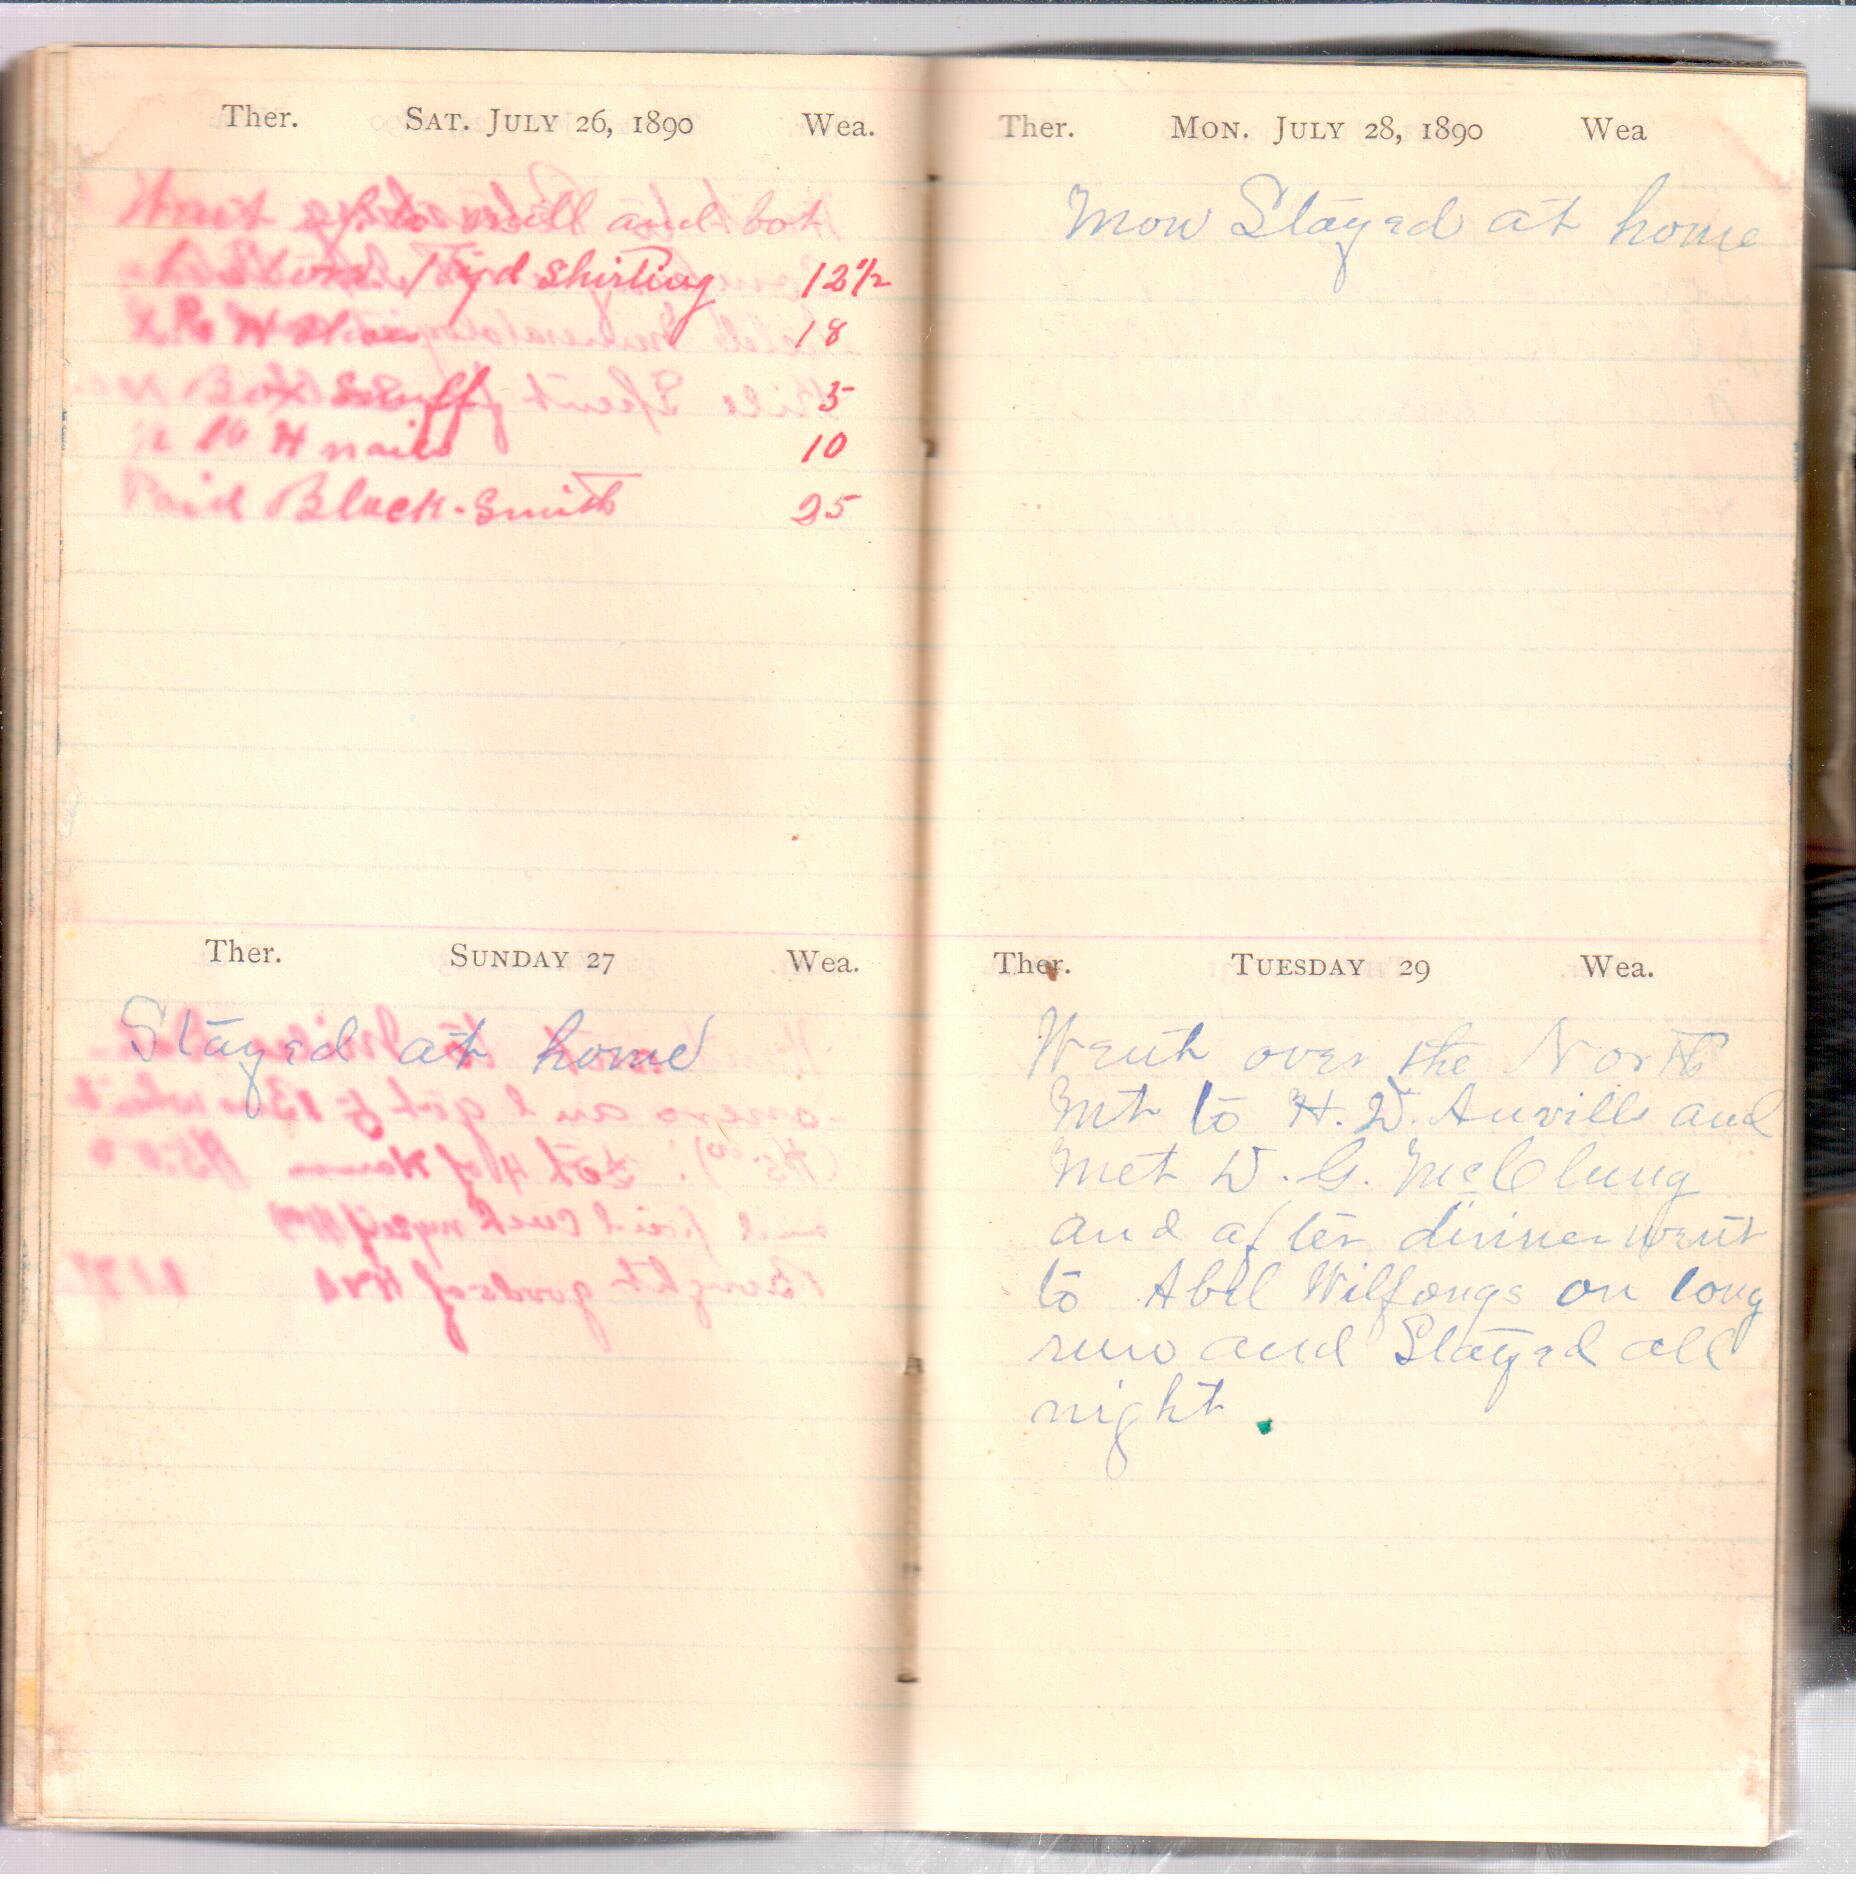 Ther. SAT. JULY 26, 1890 Wea.
Went up to mill and bot
1 yd Shirting 12 1/2
18
Box Snuff 5
H nails 10
Paid Black-Smith 25
Ther. SUNDAY 27 Wea.
Stayed at home
Ther. MON. JULY 28, 1890 Wea
Mon Stayed at home
Ther. TUESDAY 29 Wea.
Went over the North
Mt to H. W. Auvills and
Met W. G. McClung
and after dinner went
to Abel Wilfongs on long
run and Stayed all
night.